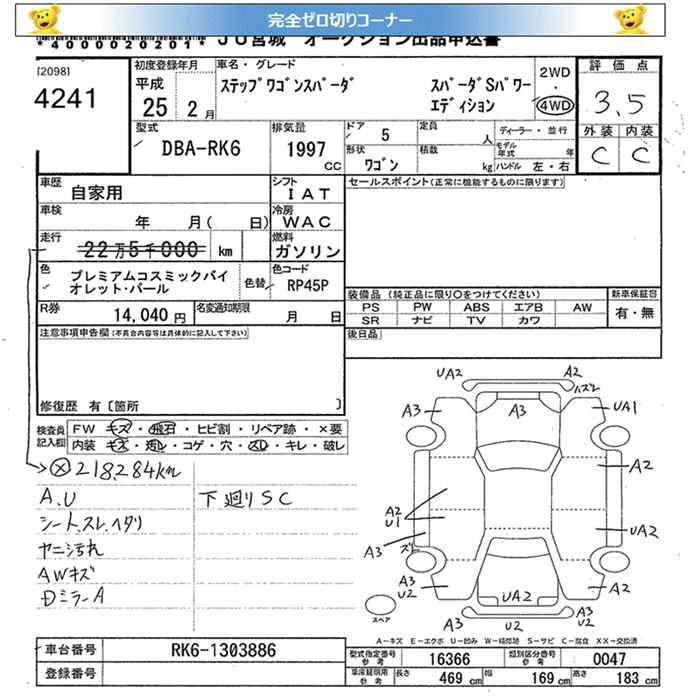 完全ゼロ切りコーナー
*4000020201* JU宮城 オークション出品申込書
[2098]
4241
初度登録年月
平成
25 2 月
車名・グレード
ステップワゴンスパーダ スパーダSパワー
エディション
2WD
・
4WD
評価点
3.5
外装 内装
C C
型式
DBA-RK6
排気量
1997 CC
ドア 5
定員 人
ディーラー・並行
モデル年式 年
形状
ワゴン
積載 kg
ハンドル 左・右
車歴
自家用
シフト
IAT
車検
年 月( 日)
冷房
WAC
走行
22万5千000 km
燃料
ガソリン
色
プレミアムコスミックバイ
オレット・パール
色替
色コード
RP45P
R券
14,040 円
名変通知期限
月 日
セールスポイント(正常に機能するものに限ります)
装備品 (純正品に限り○をつけてください)
PS PW ABS エアB AW
SR ナビ TV カワ
新車保証書
有・無
後日品
注意事項申告欄(不具合内容等は具体的に記入して下さい)
修復歴 有〔箇所 〕
検査員
記入欄
FW キズ・飛石・ヒビ割・リペア跡・×要
内装 キズ・汚レ・コゲ・穴・スレ・キレ・破レ
×218,284km
A、U
下廻りSC
シート、スレ、ヘタリ
ヤニ汚れ
AWキズ
Dミラー A
UA2 A2
ハズレ
A3 A3 UA1
A2
A2
U1
UA2
A3
ズレ
A3
U2
UA2 A2
A3
U2
A3
U2
スペア
A-キズ E-エクボ U-凹み W-補修跡 S-サビ C-腐食 XX-交換済
車台番号 RK6-1303886
登録番号
型式指定番号
参考
16366
類別区分番号
参考
0047
車庫証明用
参考
長さ 469 cm 幅 169 cm 高さ 183 cm